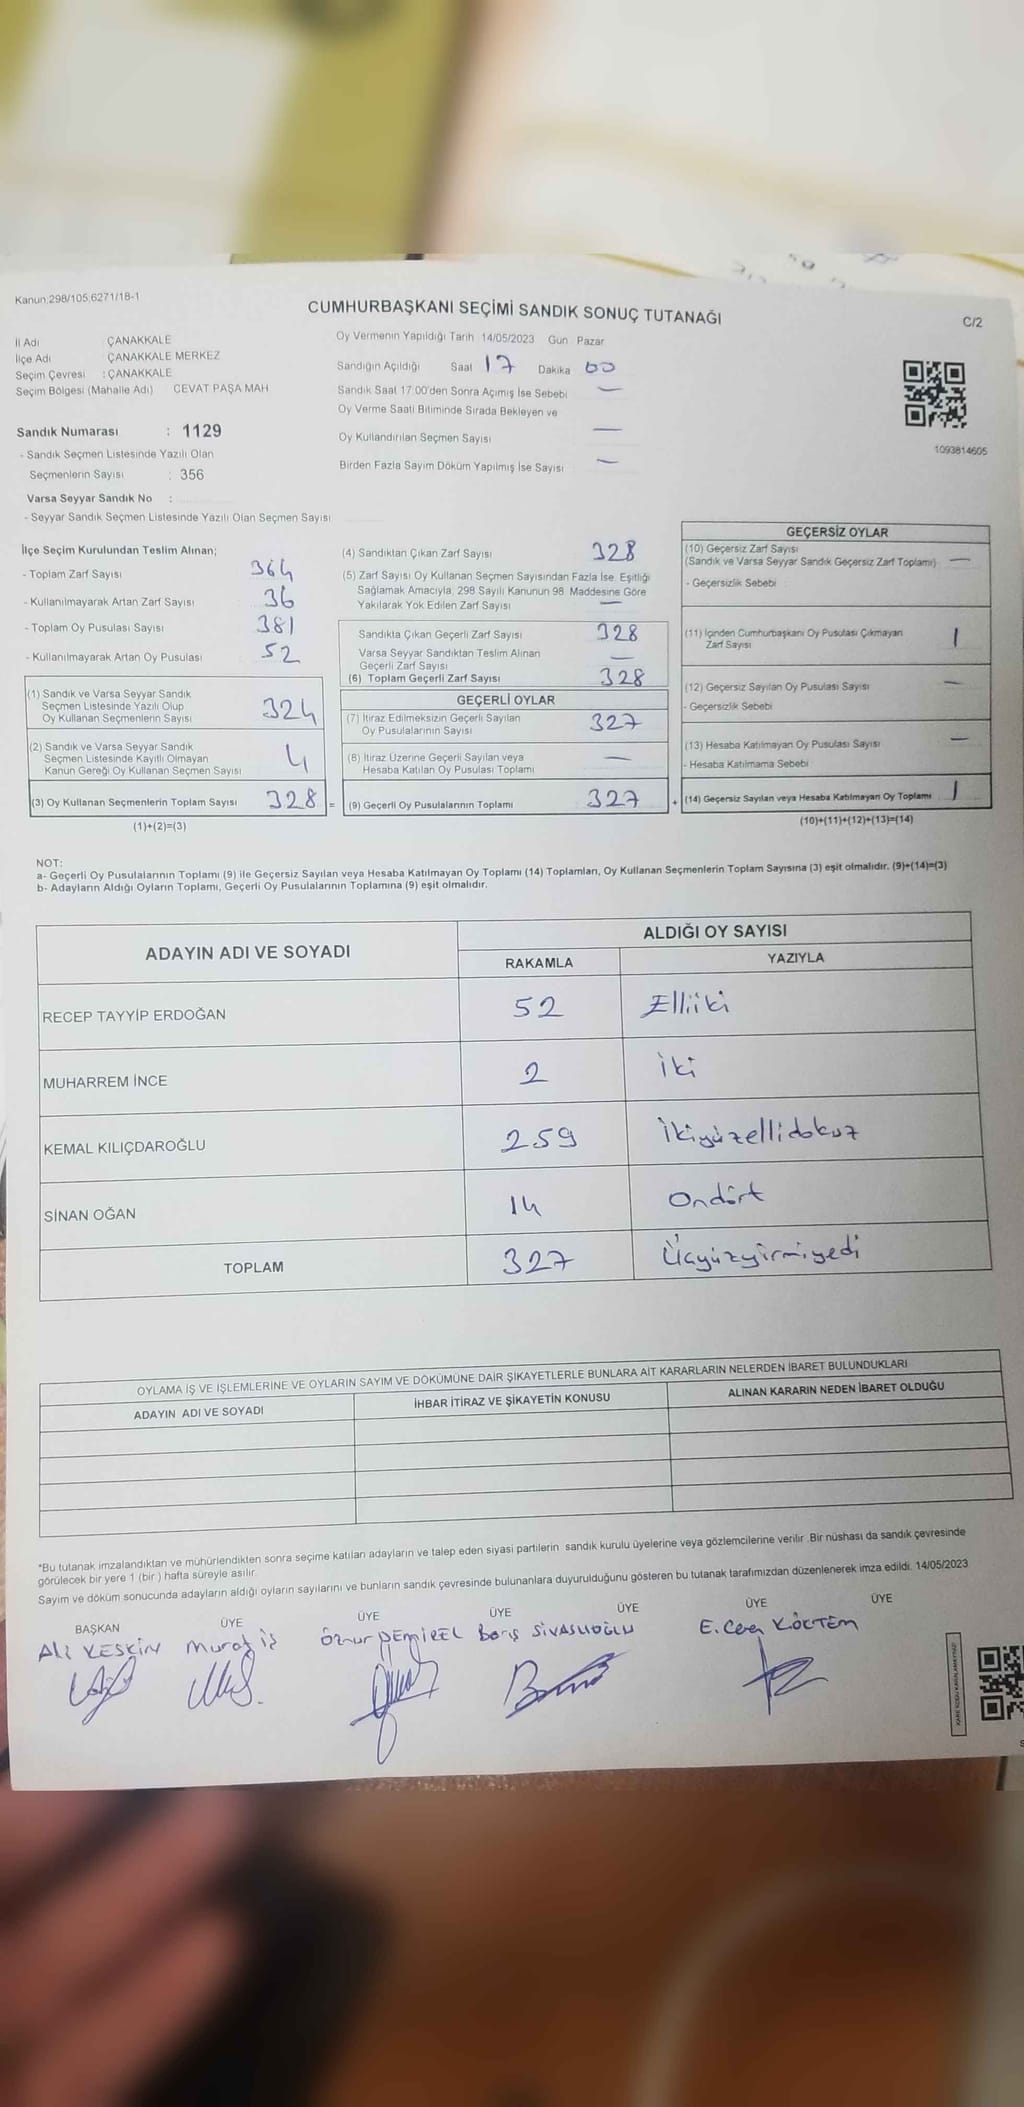 Kanun:298/105,6271/18-1
CUMHURBAŞKANI SEÇİMİ SANDIK SONUÇ TUTANAĞI
C/2
İl Adı : ÇANAKKALE
İlçe Adı : ÇANAKKALE MERKEZ
Seçim Çevresi : ÇANAKKALE
Seçim Bölgesi (Mahalle Adı) CEVAT PAŞA MAH
Sandık Numarası : 1129
- Sandık Seçmen Listesinde Yazılı Olan
Seçmenlerin Sayısı : 356
Varsa Seyyar Sandık No :
- Seyyar Sandık Seçmen Listesinde Yazılı Olan Seçmen Sayısı
Oy Vermenin Yapıldığı Tarih 14/05/2023 Gün Pazar
Sandığın Açıldığı Saat 17 Dakika 00
Sandık Saat 17:00'den Sonra Açımış İse Sebebi —
Oy Verme Saati Bitiminde Sırada Bekleyen ve
Oy Kullandırılan Seçmen Sayısı —
Birden Fazla Sayım Döküm Yapılmış İse Sayısı —
1093814605
İlçe Seçim Kurulundan Teslim Alınan;
- Toplam Zarf Sayısı 364
- Kullanılmayarak Artan Zarf Sayısı 36
- Toplam Oy Pusulası Sayısı 381
- Kullanılmayarak Artan Oy Pusulası 52
(1) Sandık ve Varsa Seyyar Sandık
Seçmen Listesinde Yazılı Olup
Oy Kullanan Seçmenlerin Sayısı 324
(2) Sandık ve Varsa Seyyar Sandık
Seçmen Listesinde Kayıtlı Olmayan
Kanun Gereği Oy Kullanan Seçmen Sayısı 4
(3) Oy Kullanan Seçmenlerin Toplam Sayısı 328 =
(1)+(2)=(3)
(4) Sandıktan Çıkan Zarf Sayısı 328
(5) Zarf Sayısı Oy Kullanan Seçmen Sayısından Fazla İse, Eşitliği
Sağlamak Amacıyla, 298 Sayılı Kanunun 98. Maddesine Göre
Yakılarak Yok Edilen Zarf Sayısı —
Sandıkta Çıkan Geçerli Zarf Sayısı 328
Varsa Seyyar Sandıktan Teslim Alınan
Geçerli Zarf Sayısı —
(6) Toplam Geçerli Zarf Sayısı 328
GEÇERLİ OYLAR
(7) İtiraz Edilmeksizin Geçerli Sayılan
Oy Pusulalarının Sayısı 327
(8) İtiraz Üzerine Geçerli Sayılan veya
Hesaba Katılan Oy Pusulası Toplamı —
(9) Geçerli Oy Pusulalarının Toplamı 327 +
GEÇERSİZ OYLAR
(10) Geçersiz Zarf Sayısı
(Sandık ve Varsa Seyyar Sandık Geçersiz Zarf Toplamı) —
- Geçersizlik Sebebi :
(11) İçinden Cumhurbaşkanı Oy Pusulası Çıkmayan
Zarf Sayısı 1
(12) Geçersiz Sayılan Oy Pusulası Sayısı —
- Geçersizlik Sebebi
(13) Hesaba Katılmayan Oy Pusulası Sayısı —
- Hesaba Katılmama Sebebi
(14) Geçersiz Sayılan veya Hesaba Katılmayan Oy Toplamı 1
(10)+(11)+(12)+(13)=(14)
NOT:
a- Geçerli Oy Pusulalarının Toplamı (9) ile Geçersiz Sayılan veya Hesaba Katılmayan Oy Toplamı (14) Toplamları, Oy Kullanan Seçmenlerin Toplam Sayısına (3) eşit olmalıdır. (9)+(14)=(3)
b- Adayların Aldığı Oyların Toplamı, Geçerli Oy Pusulalarının Toplamına (9) eşit olmalıdır.
ADAYIN ADI VE SOYADI
ALDIĞI OY SAYISI
RAKAMLA YAZIYLA
RECEP TAYYİP ERDOĞAN 52 Elliiki
MUHARREM İNCE 2 iki
KEMAL KILIÇDAROĞLU 259 İkiyüzellidokuz
SİNAN OĞAN 14 Ondört
TOPLAM 327 Üçyüzyirmiyedi
OYLAMA İŞ VE İŞLEMLERİNE VE OYLARIN SAYIM VE DÖKÜMÜNE DAİR ŞİKAYETLERLE BUNLARA AİT KARARLARIN NELERDEN İBARET BULUNDUKLARI
ADAYIN ADI VE SOYADI İHBAR İTİRAZ VE ŞİKAYETİN KONUSU ALINAN KARARIN NEDEN İBARET OLDUĞU
*Bu tutanak imzalandıktan ve mühürlendikten sonra seçime katılan adayların ve talep eden siyasi partilerin sandık kurulu üyelerine veya gözlemcilerine verilir .Bir nüshası da sandık çevresinde
görülecek bir yere 1 (bir ) hafta süreyle asılır.
Sayım ve döküm sonucunda adayların aldığı oyların sayılarını ve bunların sandık çevresinde bulunanlara duyurulduğunu gösteren bu tutanak tarafımızdan düzenlenerek imza edildi. 14/05/2023
BAŞKAN ÜYE ÜYE ÜYE ÜYE ÜYE ÜYE
Ali KESKİN Murat iş Öznur DEMİREL Barış SİVASLIOĞLU E. Cem KÖKTEM